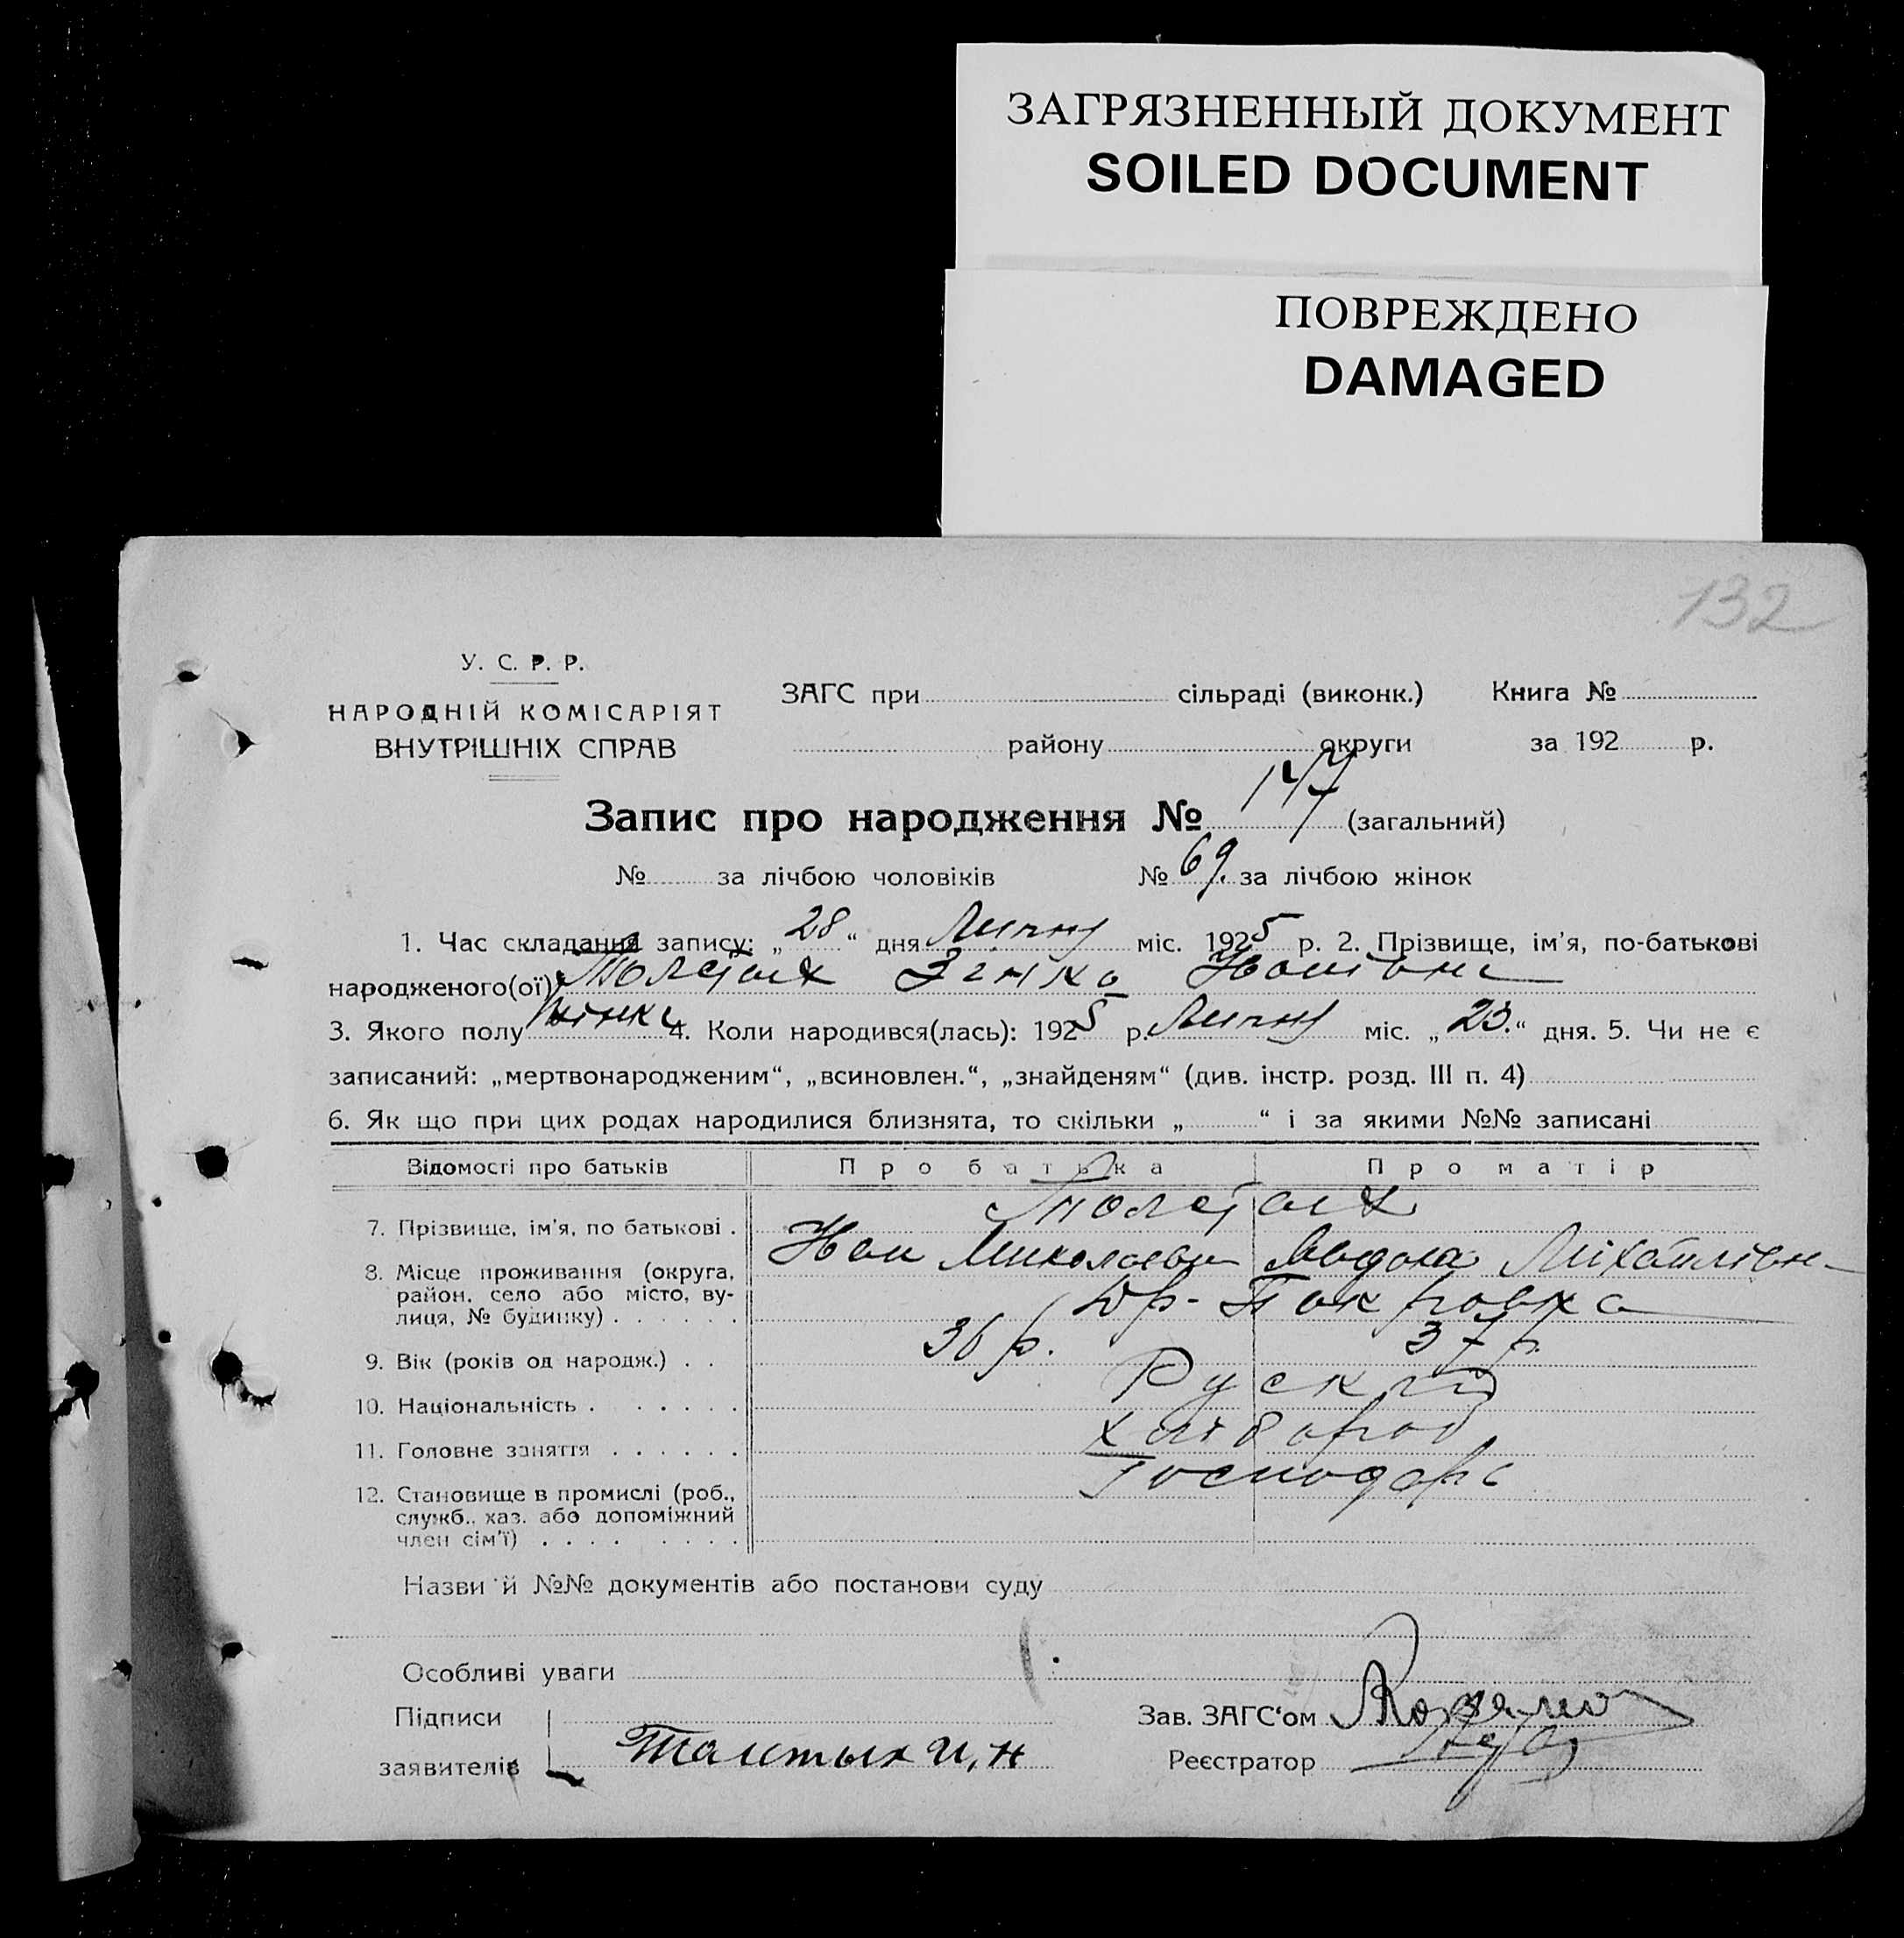 ЗАГРЯЗНЕННЫЙ ДОКУМЕНТ
SOILED DOCUMENT
ПОВРЕЖДЕНО
DAMAGED
132
У. С. Р. Р.
НАРОДНІЙ КОМІСАРІЯТ
ВНУТРІШНІХ СПРАВ
ЗАГС при сільраді (виконк.) Книга №
району округи за 192 р.
Запис про народження № 147 (загальний)
№ за лічбою чоловіків № 69. за лічбою жінок
1. Час складання запису: „28“ дня Липня міс. 1925 р. 2. Прізвище, ім'я, по-батькові
народженого(ої):
3. Якого полу жінка 4. Коли народився(лась): 1925 р. Липня міс. „23.“ дня. 5. Чи не є
записаний: „мертвонародженим“, „всиновлен.“, „знайденям“ (див. інстр. розд. III п. 4)
6. Як що при цих родах народилися близнята, то скільки „ “ і за якими №№ записані
Відомості про батьків Про батька Про матір
7. Прізвище, ім'я, по батькові .
Миколаевич Міхайлівн
8. Місце проживання (округа,
район, село або місто, ву-
лиця, № будинку) . . . . . .
Покровка
9. Вік (років од народж.) . . 36 р. 37 р.
10. Національність . . . . . . Руский
11. Головне заняття . . . . . . Хлібороб
12. Становище в промислі (роб.,
служб., хаз. або допоміжний
член сім'ї) . . . . . . . .
Господарь
Назви й №№ документів або постанови суду
Особливі уваги
Підписи
заявителів Талстых И, Н
Зав. ЗАГС‘ом
Реєстратор